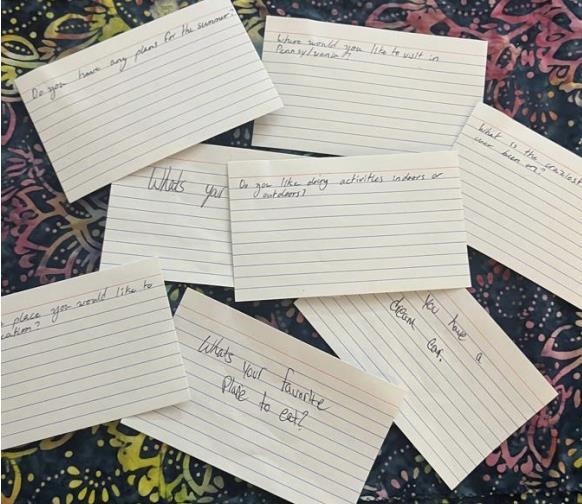 Do you have any plans for the summer?
Where would you like to visit in
Pennsylvania?
What is the craziest
ever been on?
Whats your
Do you like doing activities indoors or
outdoors?
place you would like to
cation?
You have a
dream car.
Whats your favorite
place to eat?